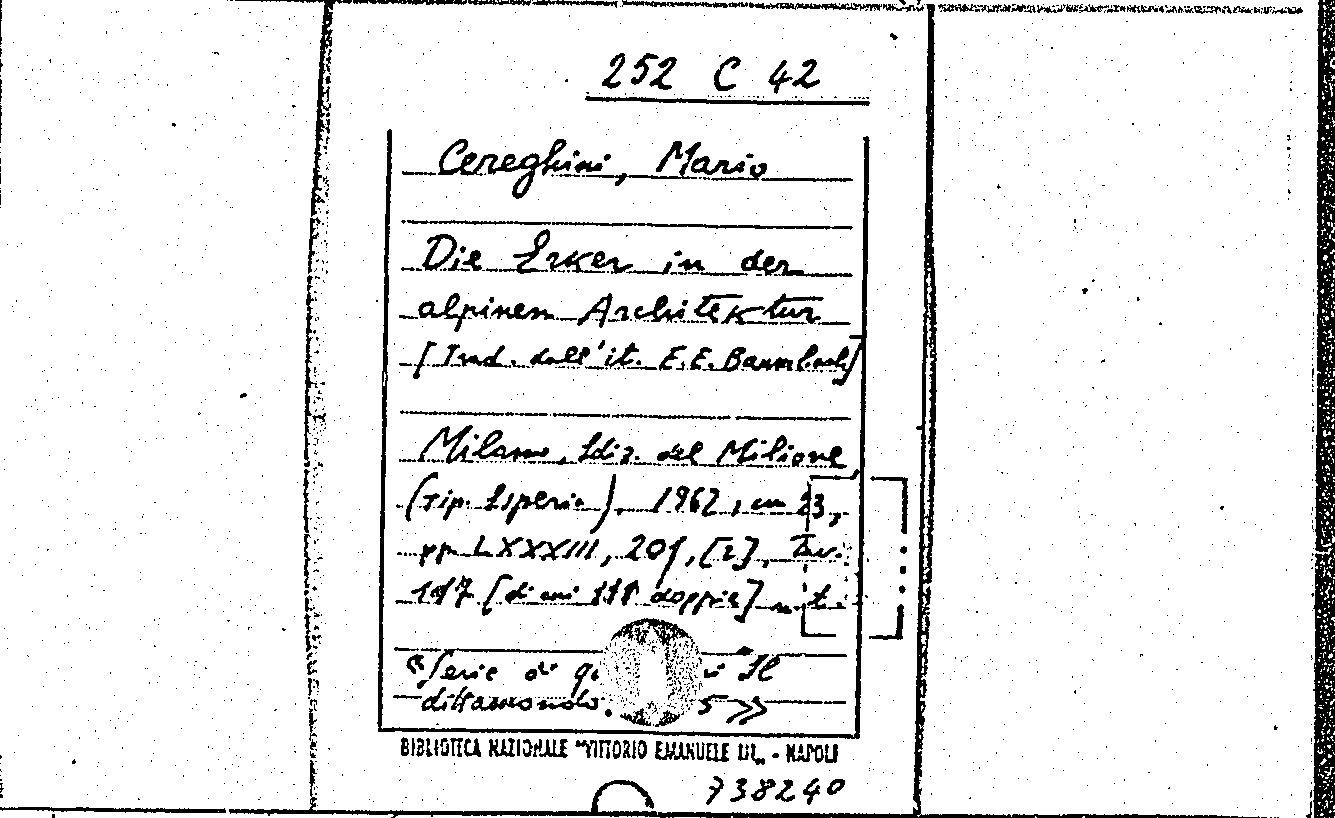 252 C 42
Cereghini, Mario
Die Erker in der
alpinen Architektur
[Trad. dall'it. E.E. Baumbach]
Milano, Ediz. del Milione,
(Tip. Esperia), 1962, cm 23,
pp. LXXXIII, [2], Tav.
[di cui doppie] n. t.
«Serie di Il
dittamondo. 5»
BIBLIOTECA NAZIONALE "VITTORIO EMANUELE III" - NAPOLI
738240